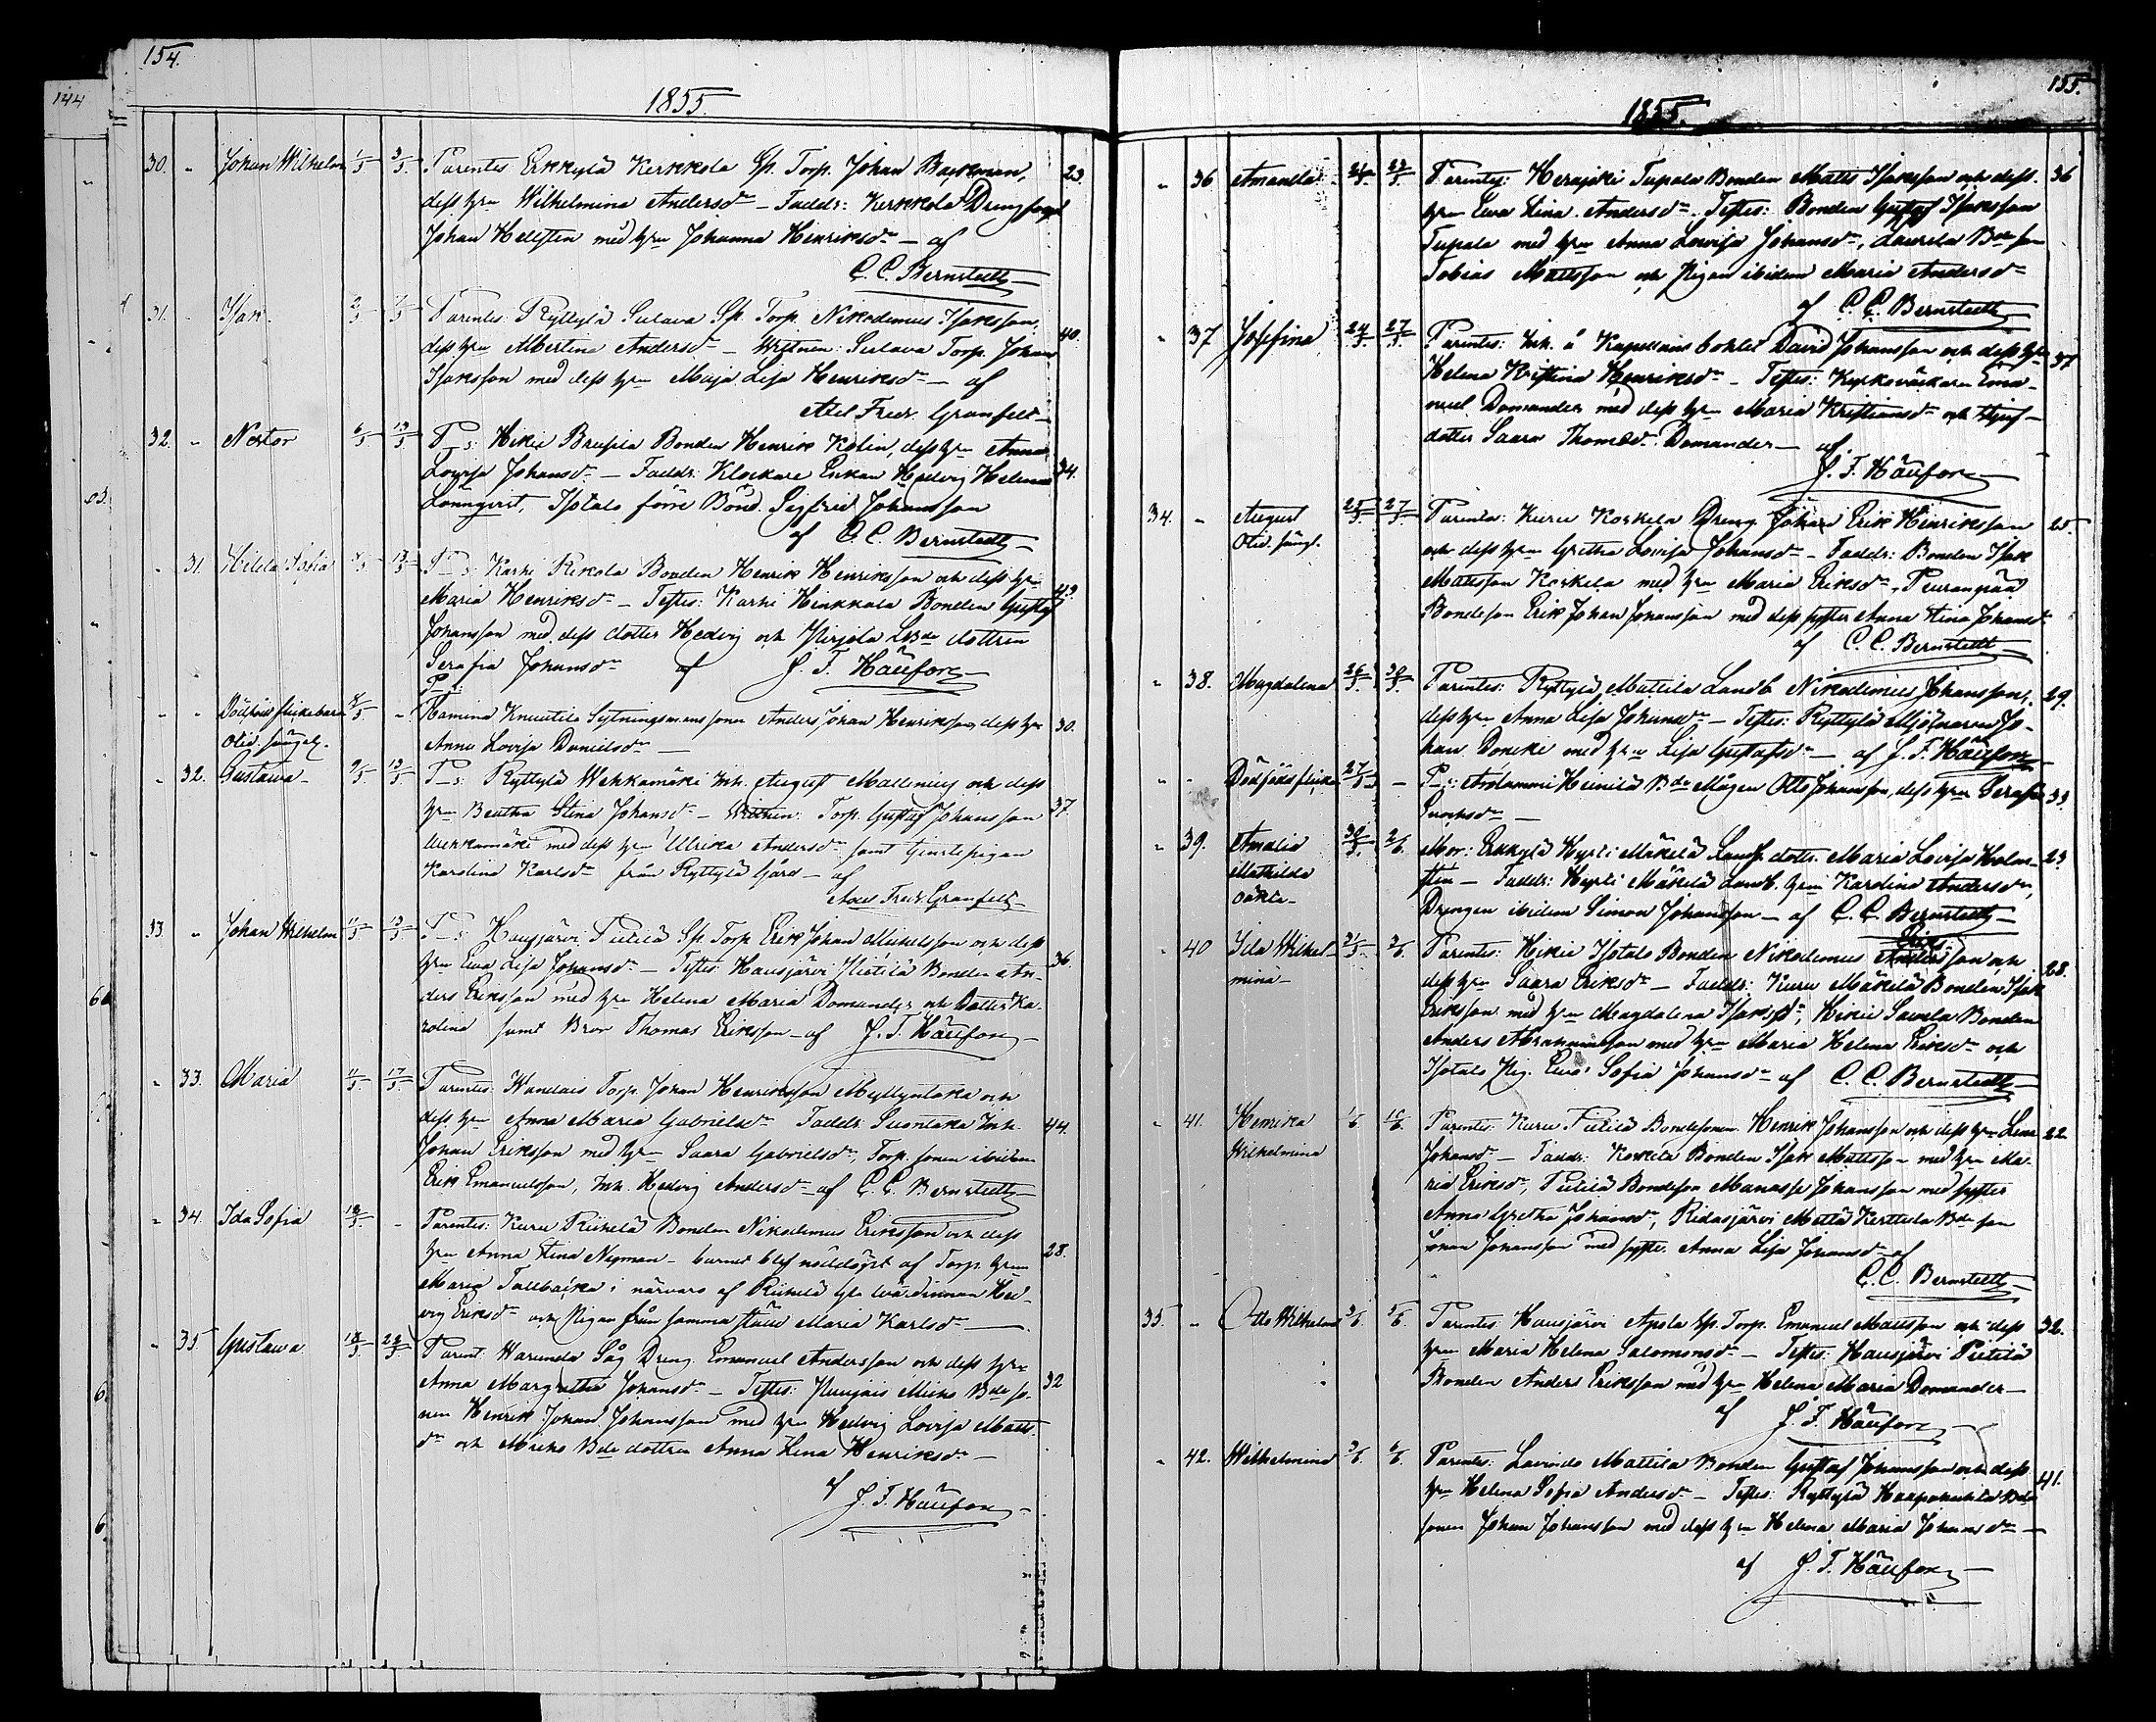 154.
144
1855.
30. " Johan Wilhelm 1/5 3/5. Parentes Erkkylä Kerkkola Sp. Torp. Johan Backman, 23.
dess hru Wilhelmina Andersdr – Faddr: Kerkkola Dreng
Johan Hellsten med hru Johanna Henriksdr – af
C. C. Bernstedt
31. " Isak 2/5 Parentes: Ryttylä Sulava Sp. Torp. Nikodemus Isaksson, 40.
dess hru Albertina Andersdr – Wittnen: Sulava Torp. Johan
Isaksson med dess hru Maja Lisa Henriksdr – af
Axel Fredr. Granfelt
32. " Nestor 6/5 13/5 P–s: Hikiä Brusila Bonden Henrik Kolin, dess hru Anna
Lovisa Johansdr – Faddr: Klockare Enkan Hedvig Helena 34.
Lönnqvist, Isotalo förre Bond. Sigfrid Johansson
af C. C. Bernstedt
" 31. Hilda Sofia 13/5 P–s: Karhi Rekola Bonden Henrik Henriksson och dess hru
Maria Henriksdr – Testes: Karhi Hinkkala Bonden Gustaf 49.
Johansson med dess dotter Hedvig och Pirjola dottren
Serafia Johansdr af J. F. Häufor
P–s:
" " Dödfödt flickebarn 8/5 – Hamina Knuutila Sytningsmans sonen Anders Johan Henriksson, dess hru 30.
Oäd. Anna Lovisa Danielsdr –
" 32. Gustava 9/5 13/5 P–s: Ryttylä Wehkamäki Inh. August Mallenius och dess
hru Beatha Stina Johansdr – Wittnen: Torp. Gustaf Johansson 37.
Wehkamäki med dess hru Ulrika Andersdr samt Gerstepigan
Karolina Karlsdr från Ryttylä Gård – af
Axel Fredr. Granfelt
33. " Johan Wilhelm 11/5 13/5 P–s: Hausjärvi Pietilä Sp. Torp. Erik Johan Michelsson och dess
hru Ewa Lisa Johansdr – Testes: Hausjärvi Pietilä Bonden An- 36.
ders Eriksson med hru Helena Maria Domander och Dotter Ka-
rolina samt Bror Thomas Eriksson – af J. F. Häufor
" 33. Maria 11/5 17/5 Parentes: Wandais Torp. Johan Henriksson Myllyntaka och
dess hru Anna Maria Gabrielsdr Faddr: Suontaka Inh. 44.
Johan Eriksson med hru Saara Gabrielsdr, Torp. sonen ibidem
Erik Emanuelsson, Inh. Hedvig Andersdr af C. C. Bernstedt
" 34. Ida Sofia 12/5 – Parentes: Kuru Riihelä Bonden Nikodemus Eriksson och dess
hru Anna Stina Nyman – barnet blef nöddöpt af Torp. hru 28.
Maria Tallbacka i närvaro af Riihelä värdinnan Hed-
vig Eriksdr och Pigan från samma ställe Maria Karlsdr –
" 35. Gustava 18/5 22/5 Parent: Warunda Såg Dreng. Emanuel Andersson och dess hru
Anna Margretha Johansdr – Testes: Punjais Micko Bde so- 32
nen Henrik Johan Johansson med hru Hedvig Lovisa Matts
dr och Micko Bde dottren Anna Lena Henriksdr –
af J. F. Häufor
155.
1855.
" 36 Amanda 24/5 27/5. Parentes: Herajoki Tupala Bonden Matts Isaksson och dess 36
hru Ewa Stina Andersdr. Testes: Bonden Gustaf Isaksson
Tupala med hru Anna Lovisa Johansdr, Laurila Bde son
Tobias Mattsson och Pigan ibidem Maria Andersdr
af C. C. Bernstedt
" 37 Josefina 24/5 27/5 Parentes: Inh. å Kapellansbohlet David Johansson och dess hru 37
Helena Kristina Henriksdr – Testes: Kyrkoväktaren Ema-
nuel Domander med dess hru Maria Kristiansdr och
dotter Saara Thomædr Domander – af
J. F. Häufor
34. " August 25/5 27/5. Parentes: Kuru Koskela Dreng Johan Erik Henriksson 25.
Oäd. och dess hru Gretha Lovisa Johansdr – Faddr: Bonden Isak
Mattsson Koskela med hru Maria Eriksdr, Peuranpää
Bondeson Erik Johan Johansson med dess syster Anna Stina Johansdr
af C. C. Bernstedt
" 38. Magdalena 26/5 28/5. Parentes: Ryttylä Mattila Landb. Nikodemus Johansson, 29.
dess hru Anna Lisa Johansdr – Testes: Ryttylä Mjölnaren Jo-
han Doncki med hru Lisa Gustafsdr – af J. F. Häufor
" " Dödfödt flicka 27/5 – P–s: Arolammi Heinilä Bde Mågen Otto Johansson, dess hru Serafia 33.
" 39. Amalia 30/5. 2/6. Mor: Erkkylä Hyrli Mäkelä Landb. dottr. Maria Lovisa Holm- 23
Mathilda sten – Faddr: Hyrli Mäkelä Landb. hru Karolina Andersdr,
oäkta – Drengen ibidem Simon Johansson – af C. C. Bernstedt
" 40 Ida Wilhel- 31/5 3/6. Parentes: Hikiä Isotalo Bonden Nikodemus Anders son och 28.
mina – dess hru Saara Eriksdr – Faddr: Kuru Mäkelä Bonden Isak
Eriksson med hru Magdalena Isaksdr, Hikiä Sawela Bonden
Anders Abrahamsson med hru Maria Helena Eriksdr och
Isotalo Pig. Ewa Sofia Johansdr af C. C. Bernstedt
" 41. Henrika 1/6 10/6. Parentes: Kuru Pietilä Bondesonen Henrik Johansson och dess hru Lena 22.
Wilhelmina Johansdr – Faddr: Koskela Bonden Isak Mattsson med hru Ma-
ria Eriksdr, Pietilä Bondeson Manasse Johansson med syster
Anna Gretha Johansdr, Ridasjärvi Mattä Kerttula Bde son
Johan Johansson med syster Anna Lisa Johansdr af
C. C. Bernstedt
35. " Otto Wilhelm 3/6. 5/6. Parentes: Hausjärvi Apola Sp. Torp. Emanuel Mattsson och dess 32.
hru Maria Helena Salomonsdr – Testes: Hausjärvi Pietilä
Bonden Anders Eriksson med hru Helena Maria Domander –
af J. F. Häufor
" 42. Wilhelmina 3/6. 6/6. Parentes: Lavindo Mattila Bonden Gustaf Johansson och dess 41.
hru Helena Sofia Andersdr – Testes: Ryttylä Haapahuhta Bde
sonen Johan Johansson med dess hru Helena Maria Johansdr –
af J. F. Häufor